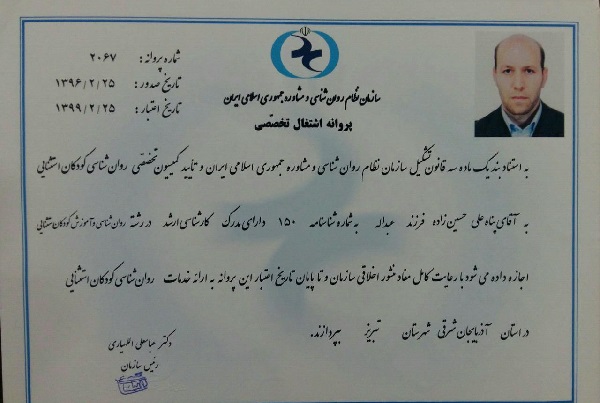 شماره پروانه: ۲۰۶۷
تاریخ صدور: ۱۳۹۶/۲/۲۵
تاریخ اعتبار: ۱۳۹۹/۲/۲۵
سازمان نظام روان شناسی و مشاوره جمهوری اسلامی ایران
پروانه اشتغال تخصّصی
به استناد بند یک ماده سه قانون تشکیل سازمان نظام روان شناسی و مشاوره جمهوری اسلامی ایران و تأیید کمیسیون تخصّصی روان شناسی کودکان استثنایی
به آقای پناه علی حسین زاده فرزند عبداله به شماره شناسنامه ۱۵۰ دارای مدرک کارشناسی ارشد در رشته روان شناسی و آموزش کودکان استثنایی
اجازه داده می شود با رعایت کامل مفاد منشور اخلاقی سازمان و تا پایان تاریخ اعتبار این پروانه به ارائه خدمات روان شناسی کودکان استثنایی
در استان آذربایجان شرقی شهرستان تبریز بپردازند.
دکتر عباسعلی اللهیاری
رئیس سازمان